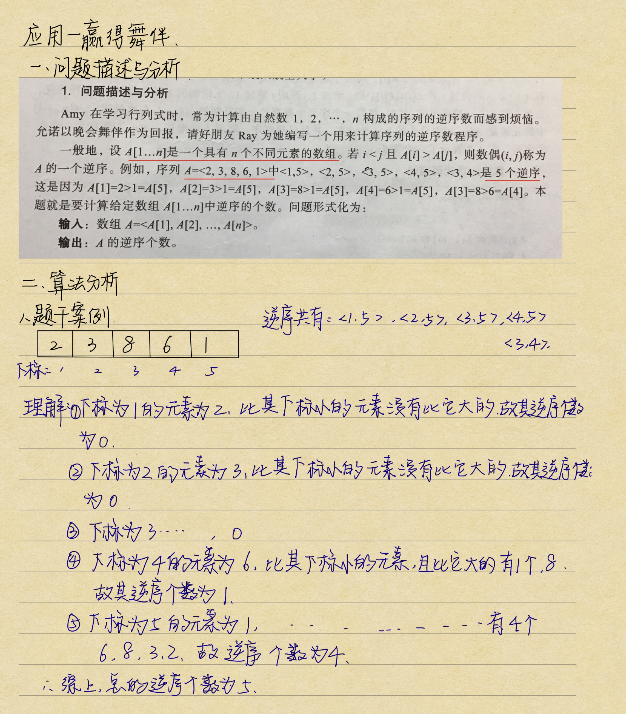 应用一赢得舞伴、
一、问题描述与分析
1. 问题描述与分析
Amy 在学习行列式时，常为计算由自然数 1，2，…，n 构成的序列的逆序数而感到烦恼。
允诺以晚会舞伴作为回报，请好朋友 Ray 为她编写一个用来计算序列的逆序数程序。
一般地，设 A[1…n]是一个具有 n 个不同元素的数组。若 i < j 且 A[i] > A[j]，则数偶(i, j)称为
A 的一个逆序。例如，序列 A=<2, 3, 8, 6, 1>中<1, 5>，<2, 5>，<3, 5>，<4, 5>，<3, 4>是 5 个逆序，
这是因为 A[1]=2>1=A[5]，A[2]=3>1=A[5]，A[3]=8>1=A[5]，A[4]=6>1=A[5]，A[3]=8>6=A[4]。本
题就是要计算给定数组 A[1…n]中逆序的个数。问题形式化为：
输入：数组 A=<A[1], A[2], …, A[n]>。
输出：A 的逆序个数。
二、算法分析
1、题干案例
逆序共有：<1.5>、<2.5>, <3.5>,<4.5>
<3,4>.
2 3 8 6 1
下标：1 2 3 4 5
理解：①下标为1的元素为2，比其下标小的元素没有比它大的.故其逆序个数
为0.
②下标为2的元素为3,比其下标小的元素没有比它大的.故其逆序个数
为0.
③下标为3……，0
④下标为4的元素为6，比其下标小的元素,且比它大的有1个,8.
故其逆序个数为1.
⑤下标为5的元素为1, ……有4个
6.8.3.2、故逆序个数为4.
∴综上,总的逆序个数为5.